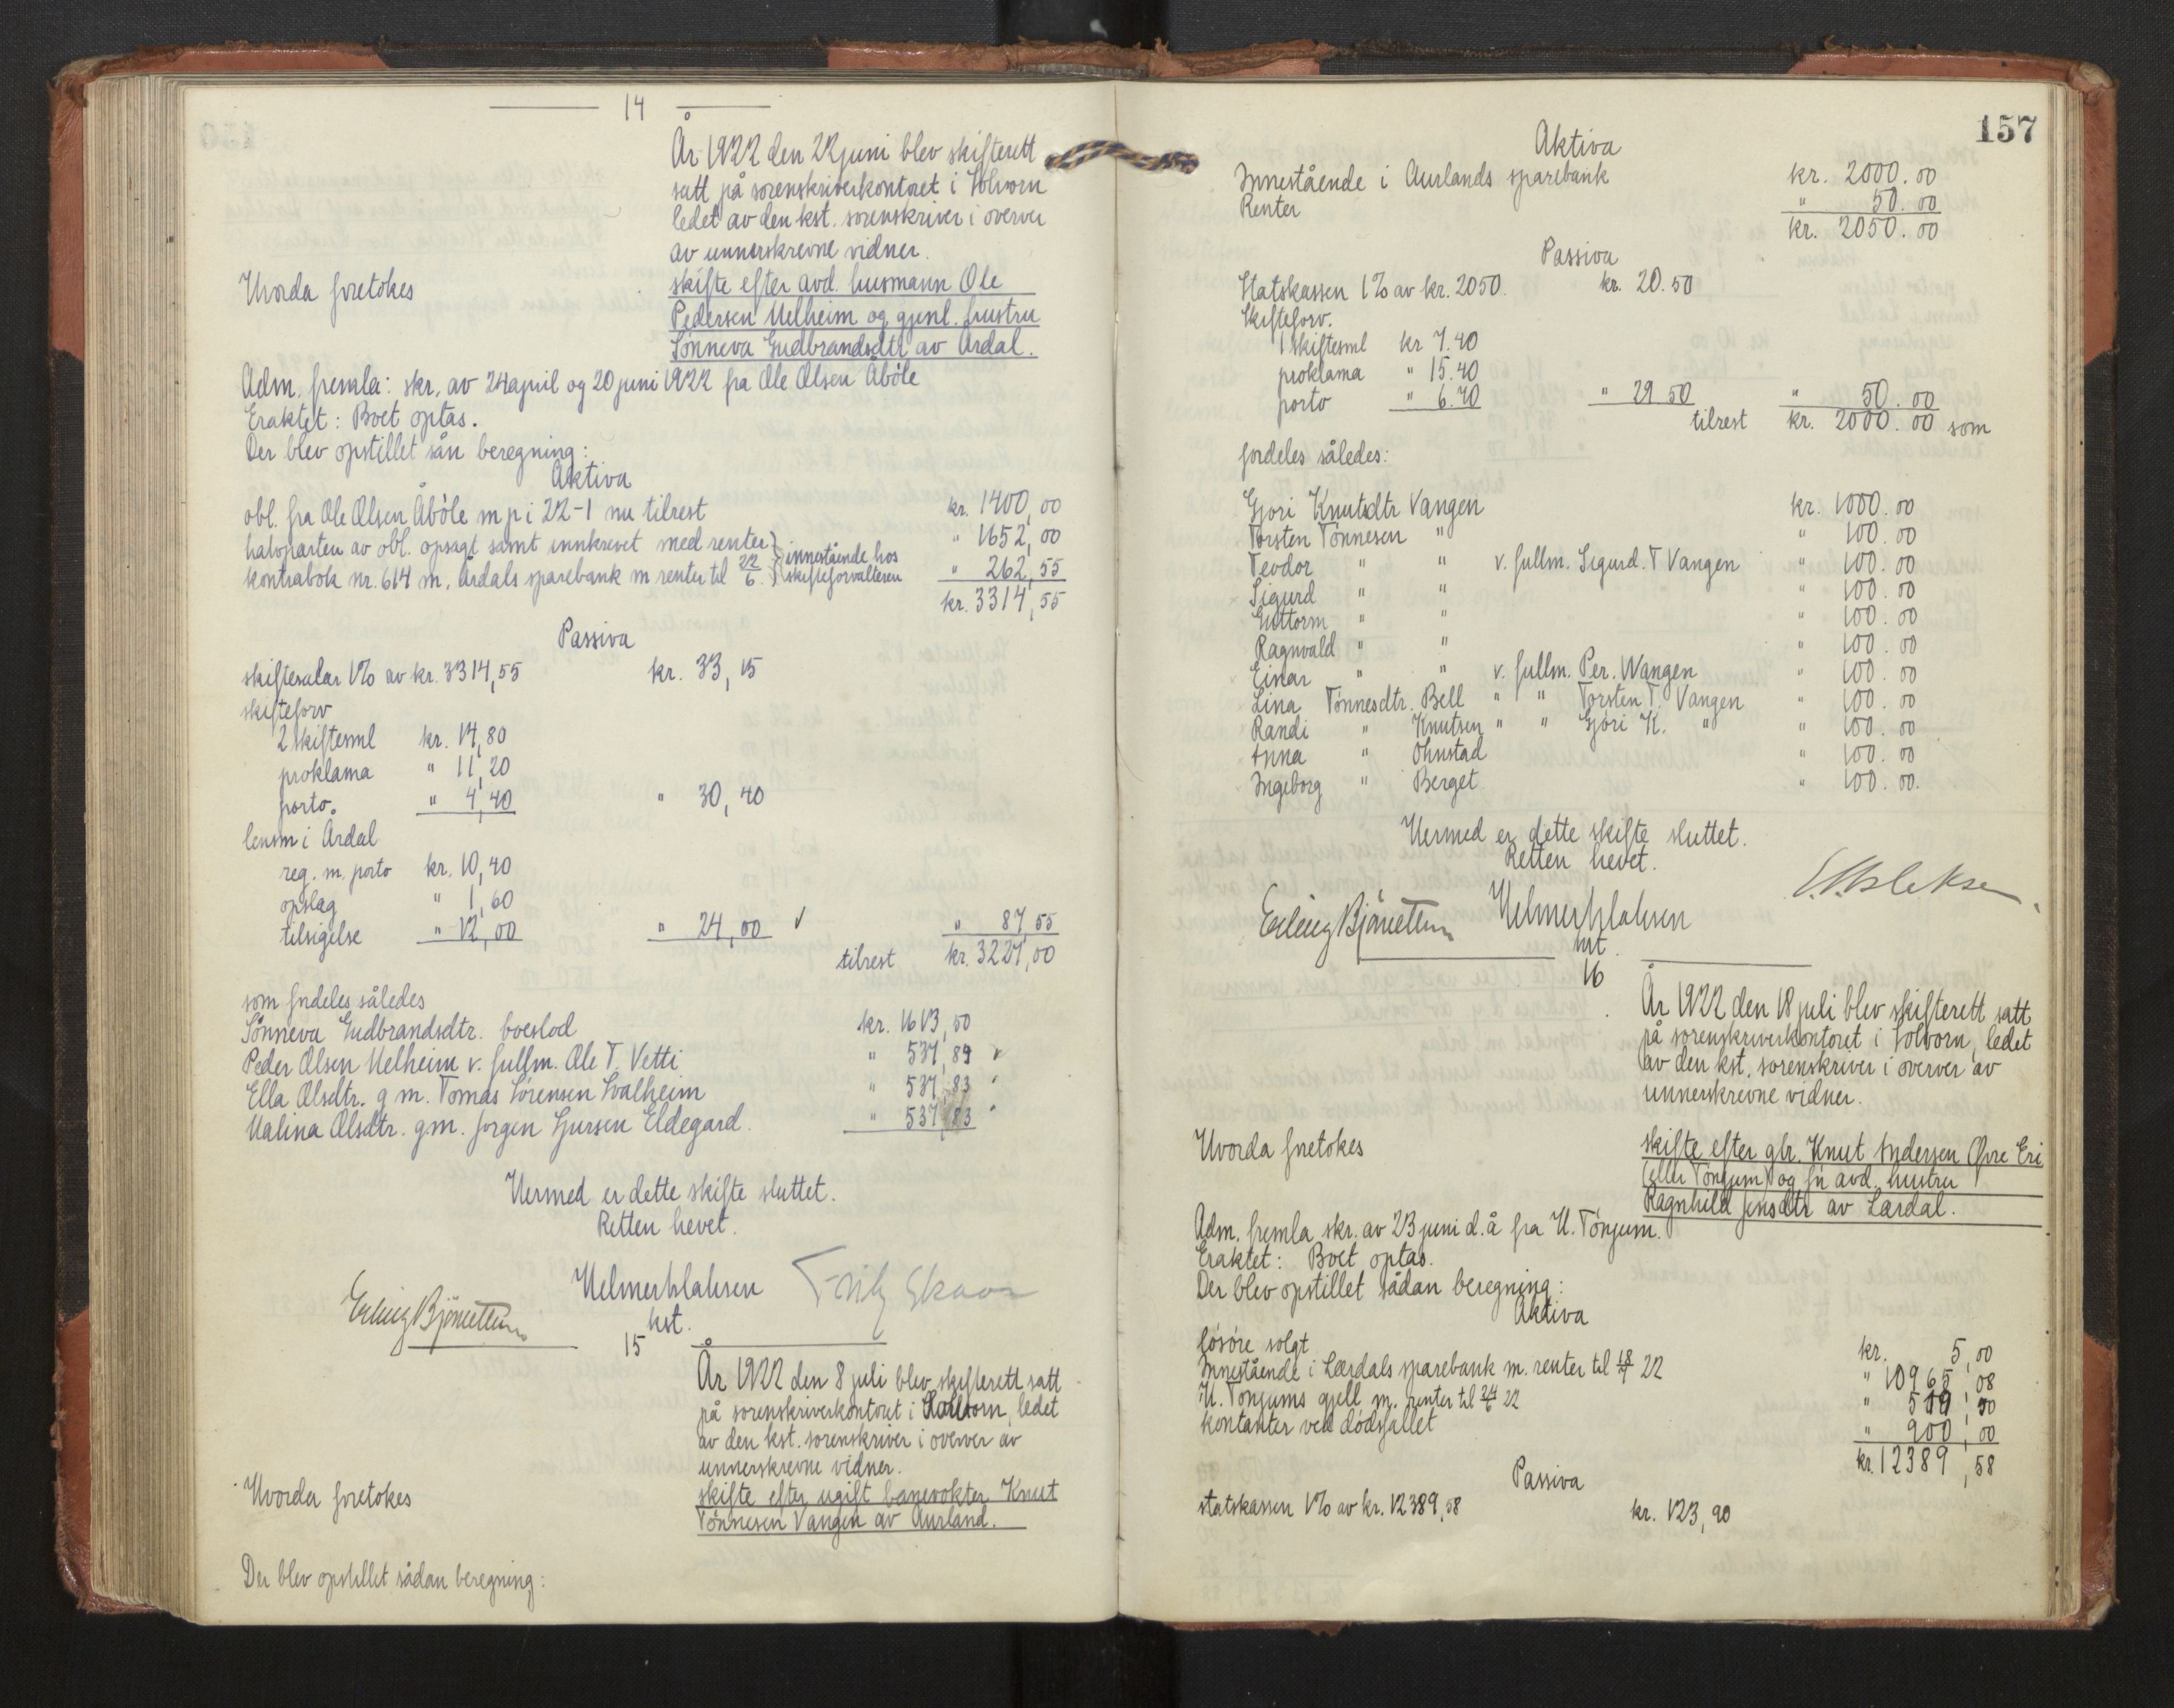 14
År 1922 den 22 juni blev skifterett
satt på sorenskriverkontoret i Solvorn
ledet av den kst. sorenskriver i overver
av unnerskrevne vidner.
Hvorda foretokes
skifte efter avd. husmann Ole
Pedersen Helheim og gjenl. hustru
Sønneva Gudbrandsdtr av Årdal.
Adm. fremla: skr. av 24 april og 20 juni 1922 fra Ole Olsen Åbøle
Eraktet: Boet optas.
Der blev opstillet sån beregning:
Aktiva
obl. fra Ole Olsen Åbøle m p i 22-1 nu tilrest kr. 1400,00
halvparten av obl. opsagt samt innkrevet med renter } innestående hos " 1652,00
kontrabok nr. 614 m. Årdals sparebank m renter til 22/6. } skifteforvalteren " 262,55
kr. 3314,55
Passiva
skiftesalar 1% av kr. 3314,55 kr. 33,15
skifteforv
2 skiftesml kr. 14,80
proklama " 11,20
porto. " 4,40 " 30,40
lensm i Årdal
reg. m. porto kr. 10,40
opslag " 1,60
tilsigelse " 12,00 " 24,00 ✓ " 87,55
tilrest kr. 3227,00
som fordeles således
Sønneva Gudbrandsdtr. boeslod kr. 1613,50
Peder Olsen Helheim v. fullm. Ole T. Vetti " 537,84 ✓
Ella Olsdtr. g m. Tomas Sørensen Svalheim " 537,83 "
Malina Olsdtr. g.m. Jørgen Sjursen Eldegard. " 537,83 "
Hermed er dette skifte sluttet.
Retten hevet.
Erling Bjørnethun Helmer Islaksen Fritz Skaar
kst.
15
År 1922 den 8 juli blev skifterett satt
på sorenskriverkontoret i Solvorn, ledet
av den kst. sorenskriver i overver av
unnerskrevne vidner.
Hvorda foretokes
skifte efter ugift banevokter Knut
Tønnesen Vangen av Aurland.
Der blev opstillet sådan beregning:
157
Aktiva
Innestående i Aurlands sparebank kr. 2000.00
Renter " 50.00
kr. 2050.00
Passiva
Statskassen 1% av kr. 2050. kr. 20.50
Skifteforv.
1 skiftesml kr 7.40
proklama " 15.40
porto " 6.70 " 29 50 " 50.00
tilrest kr. 2000.00 som
fordeles således:
Gjøri Knutsdtr Vangen kr. 1000.00
Torsten Tønnesen " " 100.00
Teodor " " v. fullm. Sigurd. T Vangen " 100.00
Sigurd " " " 100.00
Guttorm " " " 100.00
Ragnvald " " " 100.00
Einar " " v. fullm. Per. Wangen " 100.00
Lina Tønnesdtr. Bell " " Torsten T. Vangen " 100.00
Randi " Knutsen " " Gjøri K. " " 100.00
Anna " Ohnstad " 100.00
Ingeborg " Berget " 100.00.
Hermed er dette skifte sluttet.
Retten hevet.
Erling Bjørnethun Helmer Islaksen
kst.
16
År 1922 den 18 juli blev skifterett satt
på sorenskriverkontoret i Solvorn, ledet
av den kst. sorenskriver i overver av
unnerskrevne vidner.
Hvorda foretokes
skifte efter gbr. Knut Andersen Øvre Eri
(eller Tønjum) og fø avd. hustru
Ragnhild Jensdtr av Lærdal.
Adm. fremla skr. av 23 juni d. å fra H. Tønjum.
Eraktet: Boet optas.
Der blev opstillet sådan beregning:
Aktiva
løsøre solgt kr. 5,00
Innestående i Lærdals sparebank m. renter til 18/7 22 " 10965,08
H. Tønjums gjell m. renter til 24/6 22 " 519,50
kontanter ved dødsfallet " 900,00
kr. 12389,58
Passiva
statskassen 1% av kr. 12389,58 kr. 123,90